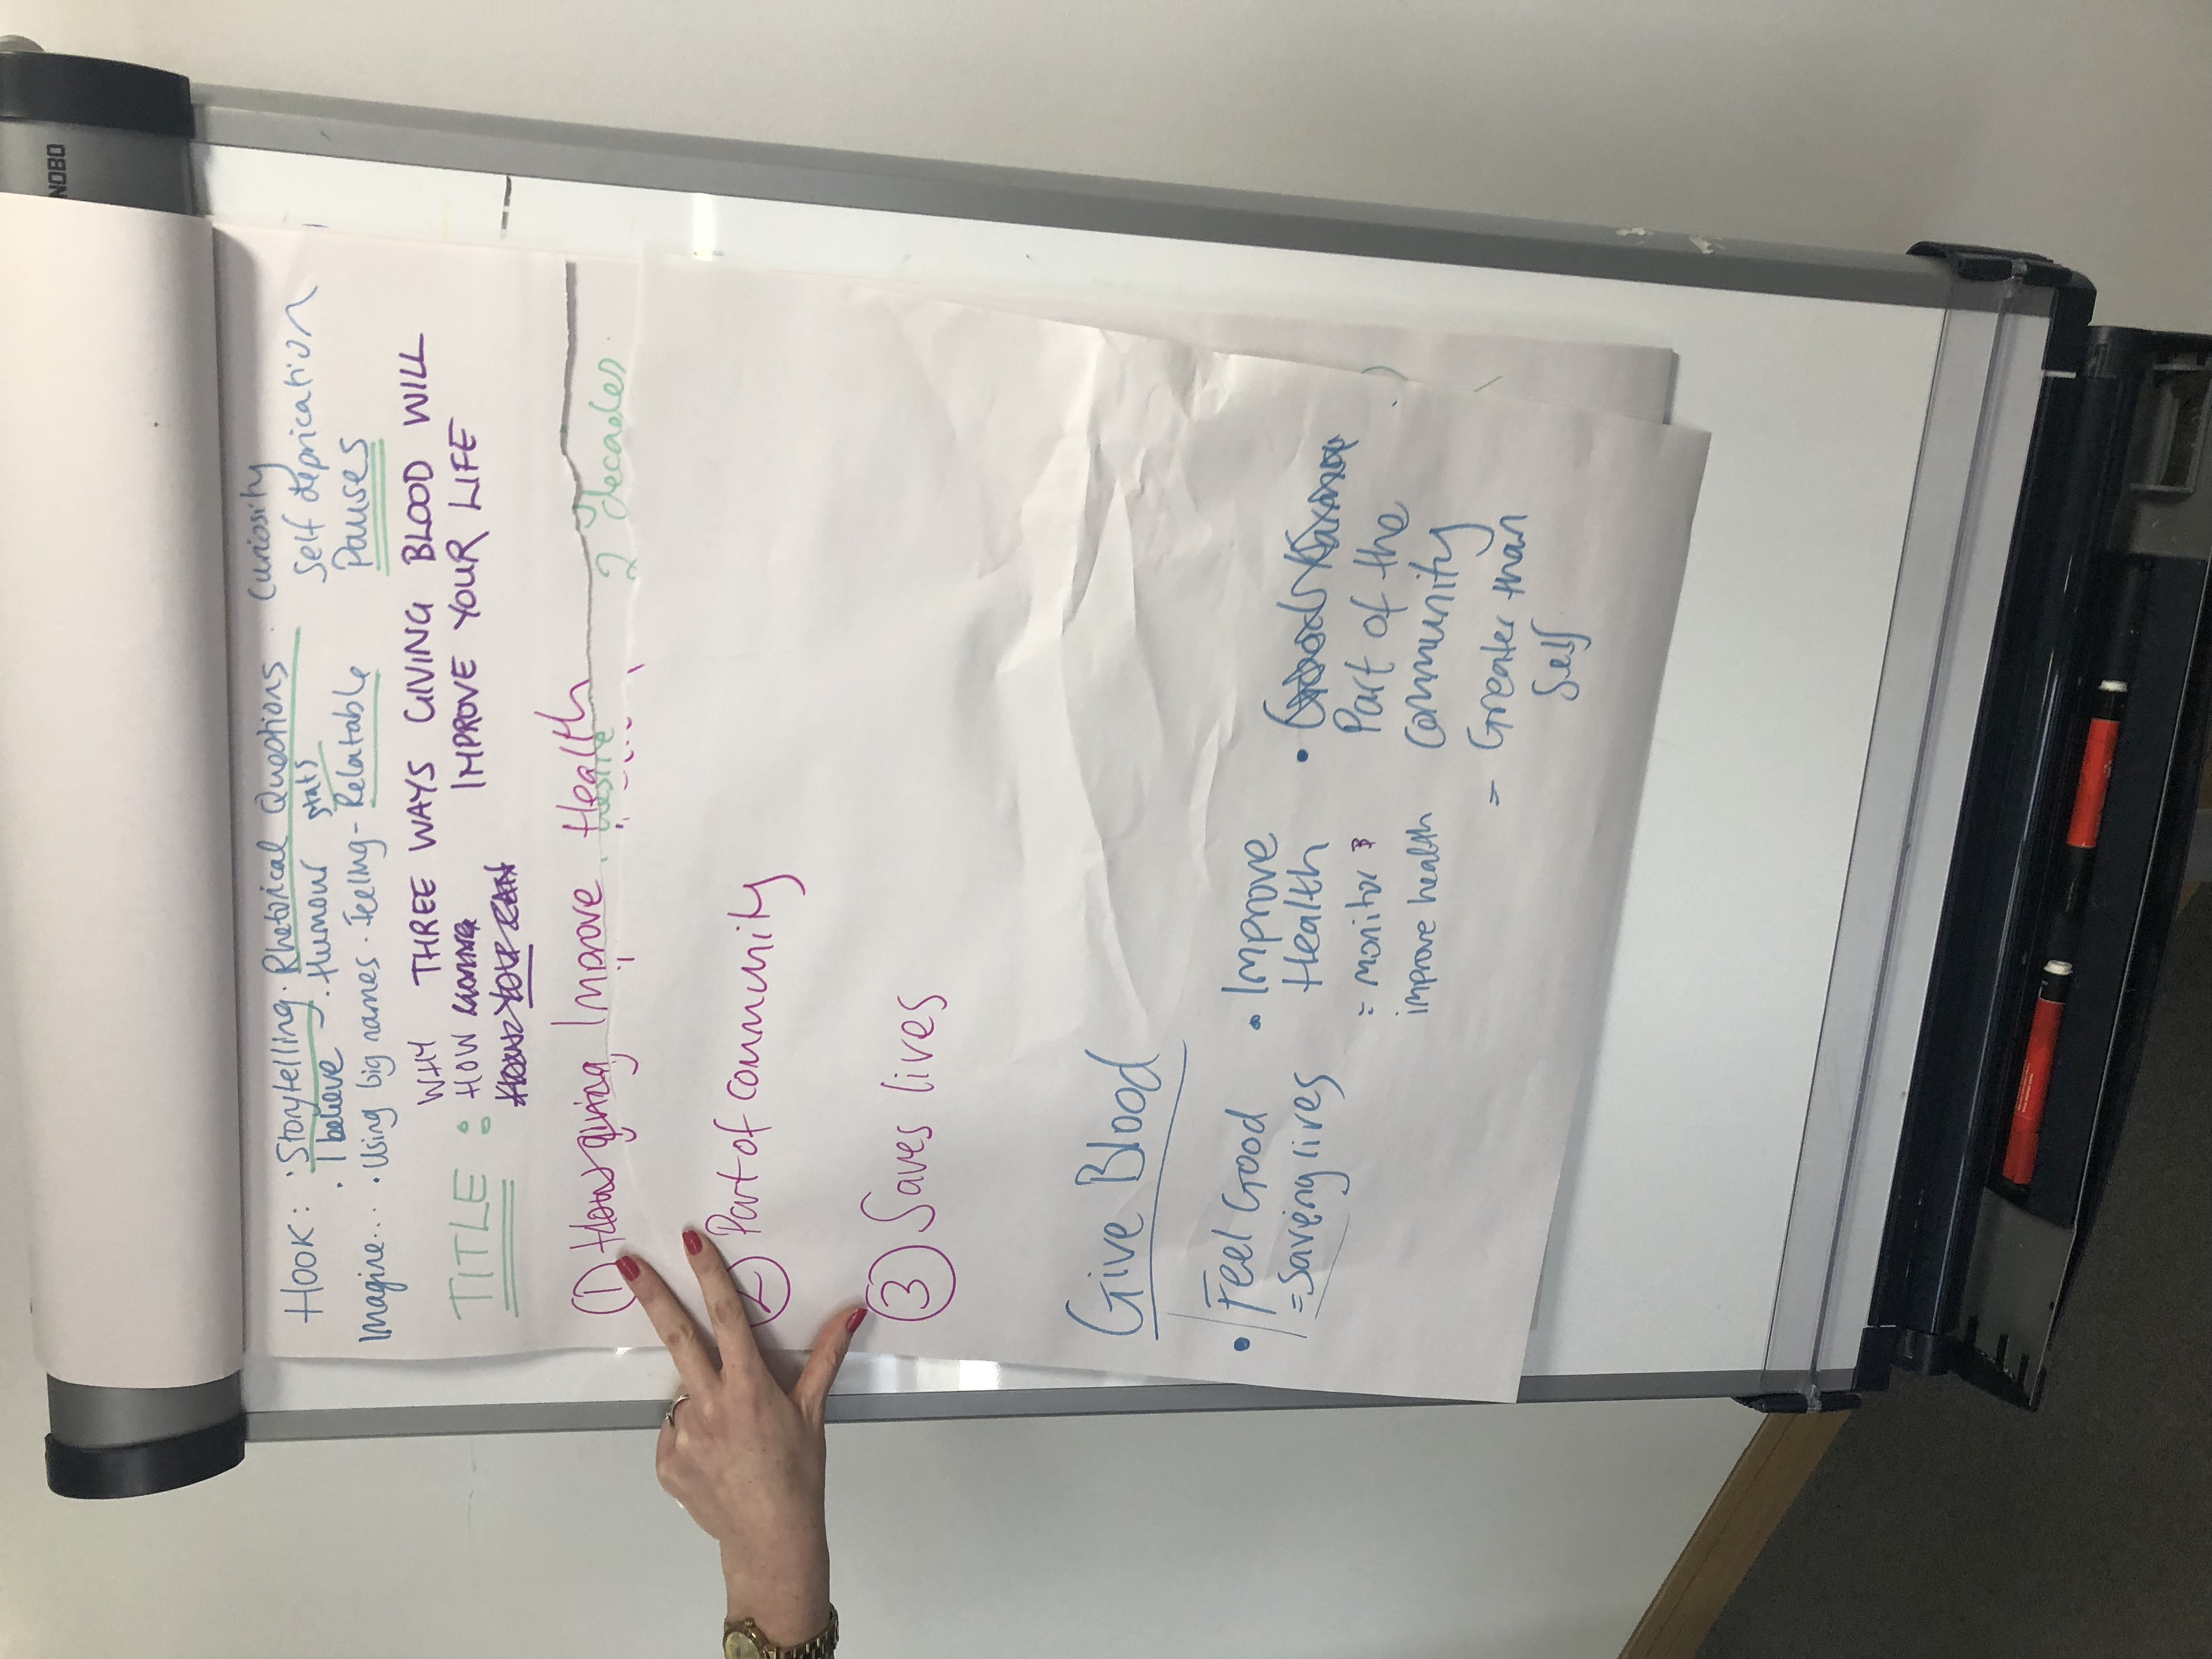 NOBO
HOOK: · Storytelling · Rhetorical Questions · Curiosity
· I believe · Humour stats Self deprication
Imagine... · Using big names · Feeling - Relatable Pauses
WHY THREE WAYS GIVING BLOOD WILL
TITLE : HOW IMPROVE YOUR LIFE
HOW YOU CAN
① How giving Improve Health
2 decades
② Part of community
③ Saves lives
Give Blood
• Feel Good
= Saving lives
• Improve
Health
= monitor &
improve health
• Good Karma
Part of the
community
= Greater than
Self